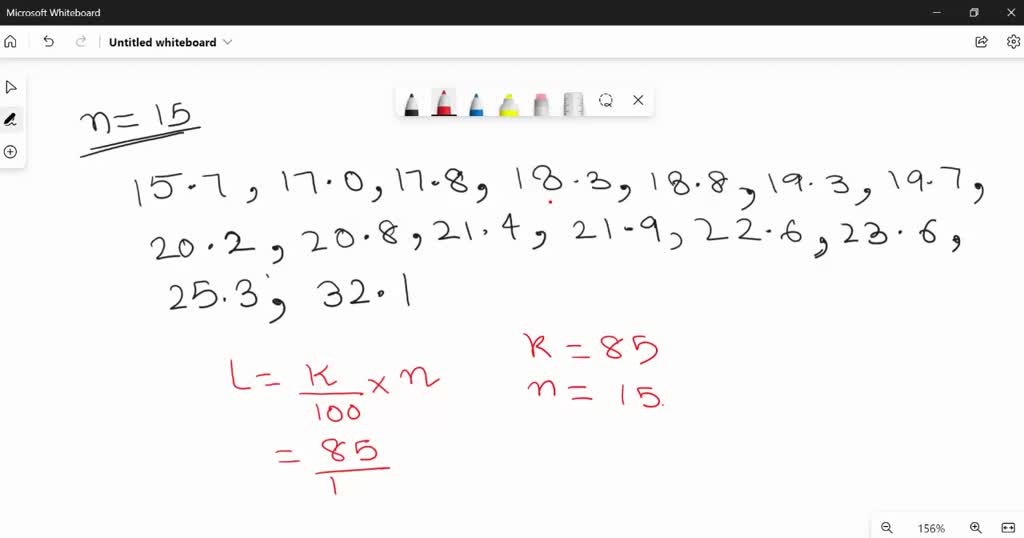 Microsoft Whiteboard
Untitled whiteboard
n = 15
15.7, 17.0, 17.8, 18.3, 18.8, 19.3, 19.7,
20.2, 20.8, 21.4, 21.9, 22.6, 23.6,
25.3, 32.1
L = K/100 × n
= 85/1
K = 85
n = 15.
156%